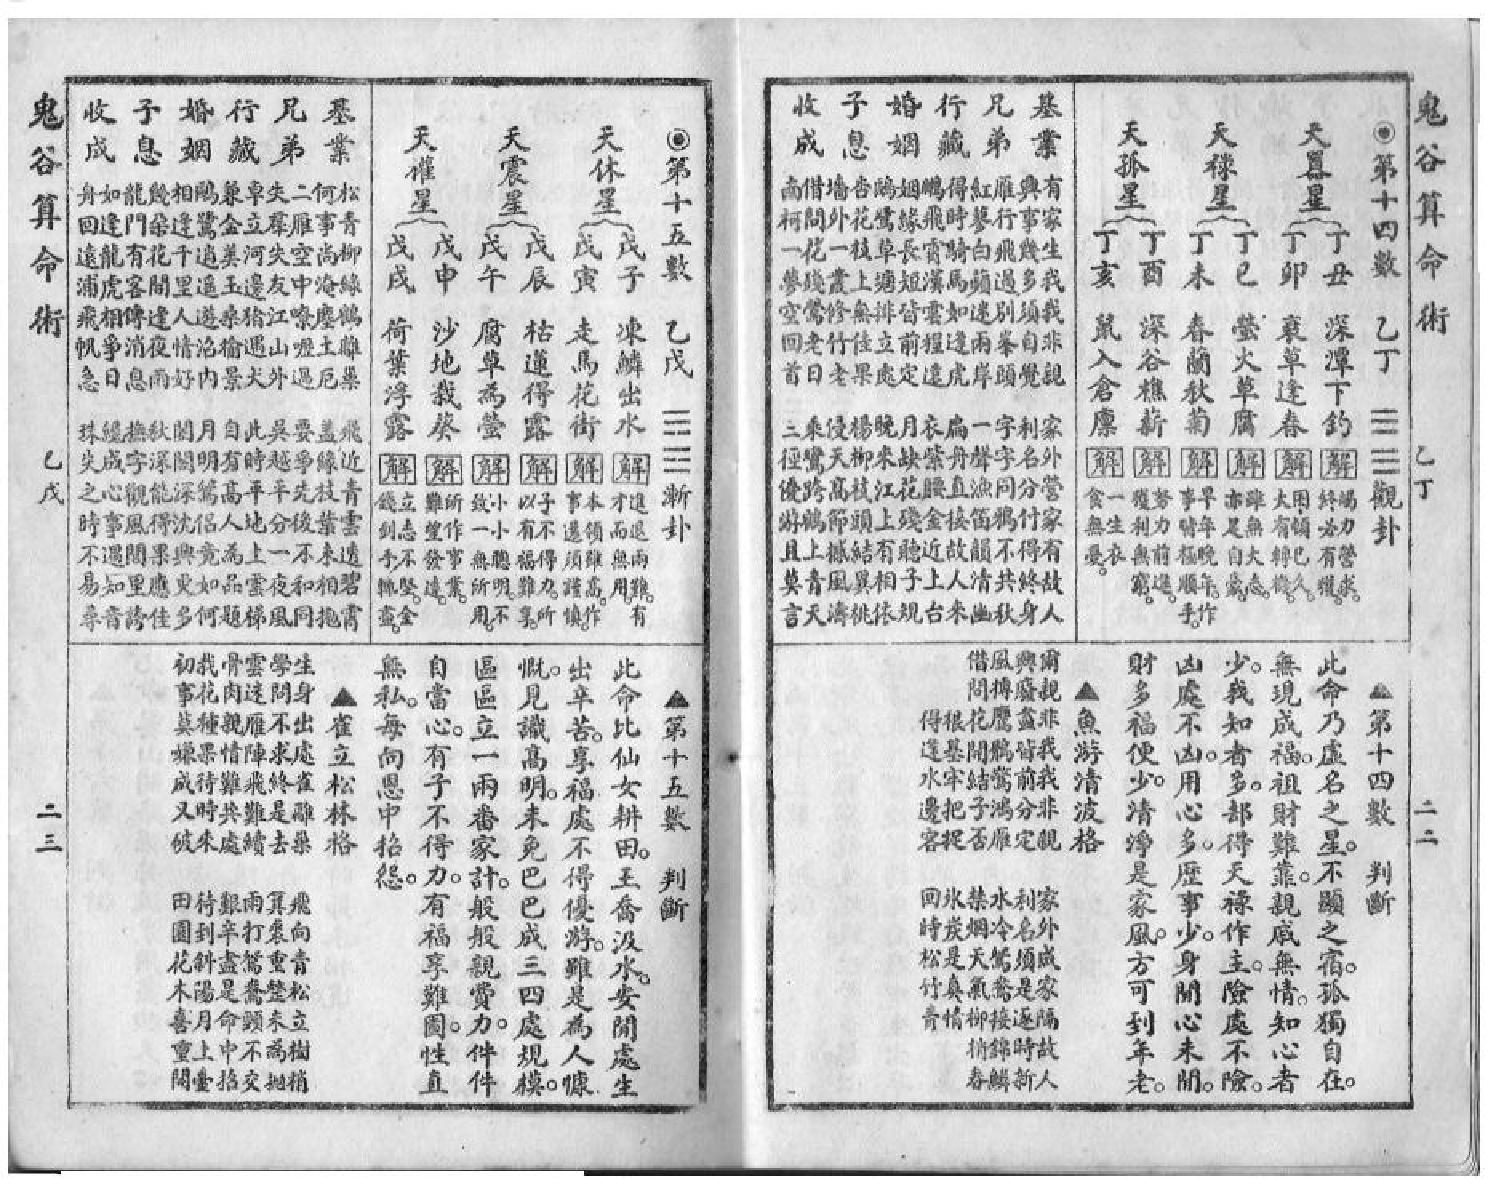 鬼谷算命術 乙丁 二二
◉第十四數 乙丁 ䷓觀卦
天囂星
丁丑 深潭下釣 解 竭力營求。終必有獲。
丁卯 衰草逢春 解 困頓已久。大有轉機。
天祿星
丁巳 螢火草腐 解 雖無大志。亦是自露。
丁未 春蘭秋菊 解 早年晚年。作事皆極順手。
天孤星
丁酉 深谷樵薪 解 努力前進。獲利無窮。
丁亥 鼠入倉廩 解 一生衣食無憂。
基業
有家生我我非親 家外營家有故人
興事幾多須自覺 利名分付得終身
兄弟
雁行飛過別峯頭 字字同鶴不共秋
紅蓼白蘋迷兩岸 一聲漁笛韻清幽
行藏
得時騎馬如逢虎 扁舟直接故人來
鵬飛霄漢雲程遠 衣紫腰金近上台
婚姻
姻緣長短皆前定 月缺花殘聽子規
鷗鷺草塘排立處 晚來江上有相依
子息
杏花枝上無佳果 楊柳枝頭結異桃
墻外一叢修竹老 侵天高節撼風濤
收成
借問花殘鶯老日 乘鸞跨鶴上青天
南柯一夢空回首 三徑優游且莫言
▲第十四數 判斷
此命乃虛名之星。不顯之宿。孤獨自在。
無現成福。祖財難靠。親戚無情。知心者
少。我知者多。部得天祿作主。險處不險。
凶處不凶。用心多。歷事少。身閒心未閒。
財多福便少。清淨是家風。方可到年老。
▲魚游清波格
爾親非我我非親 家外成家隔故人
興廢盡皆前分定 利名須是逐時新
風搏鷹鶻驚鴻雁 水冷鴛鴦接錦鱗
借問花開結子否 禁烟天氣柳梢春
根基牢把捉 氷炭是真情
得逢水邊客 回時松竹青
鬼谷算命術 乙戊 二三
◉第十五數 乙戊 ䷴漸卦
天休星
戊子 凍鱗出水 解 進退兩難。有才而無用。
戊寅 走馬花街 解 本領雖高。作事還須謹慎。
天震星
戊辰 枯蓮得露 解 子不得力。所以有福難享。
戊午 腐草為螢 解 小小聰明。不致一無所用。
天權星
戊申 沙地栽葵 解 所作事業。難望發達。
戊戌 荷葉浮露 解 立志不堅。金錢到手輒盡。
基業
松青柳綠鶴離巢 飛近青雲遠碧霄
何事尚淹塵土厄 蓋緣枝葉未相抱
兄弟
二雁空中嘹嚦過 要爭先後不和同
失羣失友江山外 吳越平分一夜風
行藏
卓立河邊猪遇犬 此時平地上雲梯
兼金美玉桑榆景 自有高人為品題
婚姻
鷗鷺逍遙遊沼內 月明鴛侶竟如何
相逢千里人情好 閨閫深沈興更多
子息
幾朵花開逢夜雨 秋深能得果應佳
龍門有客傳消息 撫字觀風閭里誇
收成
如逢龍虎相爭日 緩成心事遇知音
舟回遠浦飛帆急 珠失之時不易尋
▲第十五數 判斷
此命比仙女耕田。王喬汲水。安閒處生
出辛苦。享福處不得優游。雖是為人慷
慨。見識高明。未免巴巴成三四處規模。
區區立一兩番家計。般般親費力。件件
自當心。有子不得力。有福享難圖。性直
無私。每向恩中招怨。
▲雀立松林格
生身出處雀離巢 飛向青松立樹梢
學問不求終是去 算裘重楚未為拋
雲迷雁陣飛難續 雨打鴛鴦頸不交
骨肉親情難共處 艱辛盡是命中招
我花種果待時來 待到斜陽月上臺
初事莫嫌成又破 田園花木喜重開